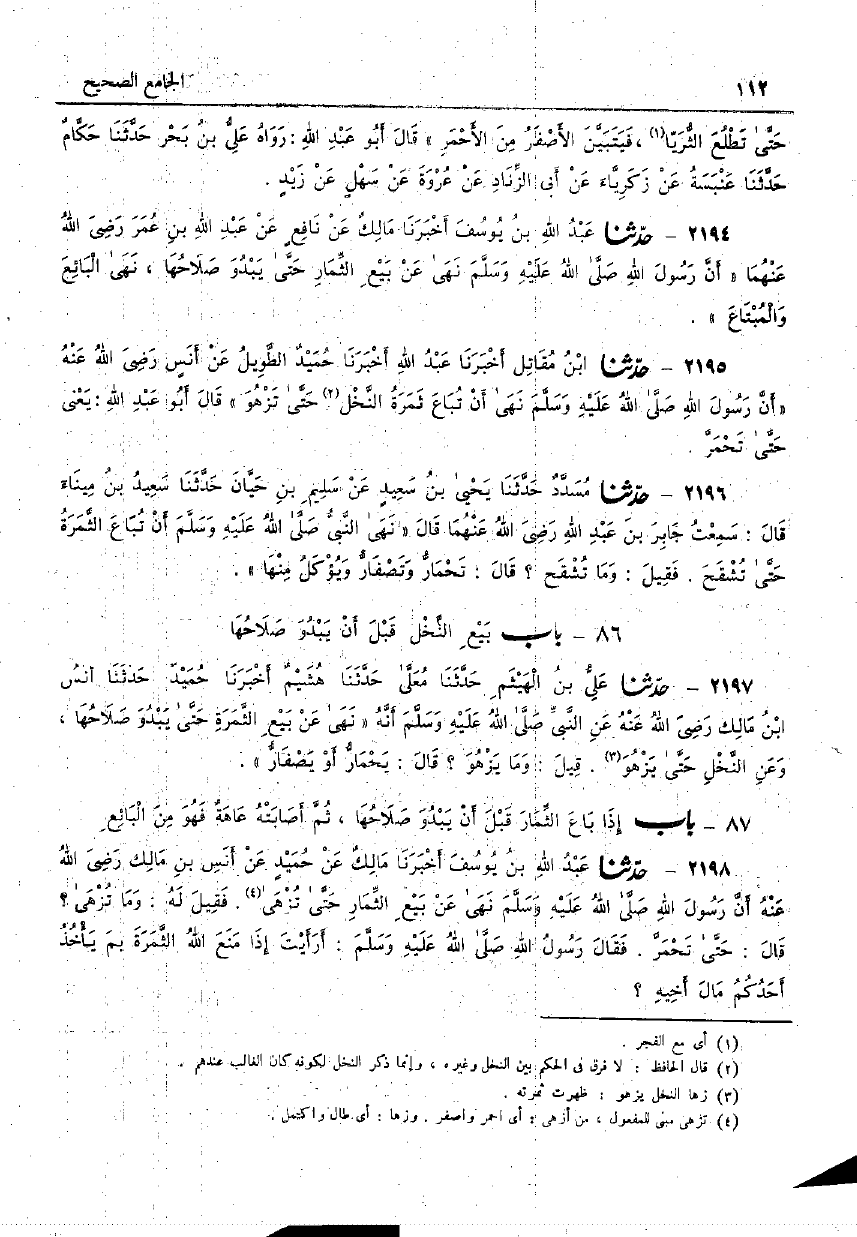 ١١٢ الجامع الصحيح
حَتَّىٰ تَطْلُعَ الثُّرَيَّا(١) ، فَيَتَبَيَّنَ الأَصْفَرُ مِنَ الأَحْمَرِ » قَالَ أَبُو عَبْدِ اللهِ : رَوَاهُ عَلِيُّ بنُ بَحْرٍ حَدَّثَنَا حَكَّامٌ
حَدَّثَنَا عَنْبَسَةُ عَنْ زَكَرِيَّاءَ عَنْ أَبِي الزِّنَادِ عَنْ عُرْوَةَ عَنْ سَهْلٍ عَنْ زَيْدٍ .
٢١٩٤ - حدّثنا عَبْدُ اللهِ بنُ يُوسُفَ أَخْبَرَنَا مَالِكٌ عَنْ نَافِعٍ عَنْ عَبْدِ اللهِ بنِ عُمَرَ رَضِيَ اللهُ
عَنْهُمَا « أَنَّ رَسُولَ اللهِ صَلَّىٰ اللهُ عَلَيْهِ وَسَلَّمَ نَهَىٰ عَنْ بَيْعِ الثِّمَارِ حَتَّىٰ يَبْدُوَ صَلَاحُهَا ، نَهَىٰ الْبَائِعَ
وَالْمُبْتَاعَ » .
٢١٩٥ - حدّثنا ابْنُ مُقَاتِلٍ أَخْبَرَنَا عَبْدُ اللهِ أَخْبَرَنَا حُمَيْدٌ الطَّوِيلُ عَنْ أَنَسٍ رَضِيَ اللهُ عَنْهُ
« أَنَّ رَسُولَ اللهِ صَلَّىٰ اللهُ عَلَيْهِ وَسَلَّمَ نَهَىٰ أَنْ تُبَاعَ ثَمَرَةُ النَّخْلِ(٢) حَتَّىٰ تَزْهُوَ » قَالَ أَبُو عَبْدِ اللهِ : يَعْنِي
حَتَّىٰ تَحْمَرَّ .
٢١٩٦ - حدّثنا مُسَدَّدٌ حَدَّثَنَا يَحْيَىٰ بنُ سَعِيدٍ عَنْ سَلِيمِ بنِ حَيَّانَ حَدَّثَنَا سَعِيدُ بنُ مِينَاءَ
قَالَ : سَمِعْتُ جَابِرَ بنَ عَبْدِ اللهِ رَضِيَ اللهُ عَنْهُمَا قَالَ « نَهَىٰ النَّبِيُّ صَلَّىٰ اللهُ عَلَيْهِ وَسَلَّمَ أَنْ تُبَاعَ الثَّمَرَةُ
حَتَّىٰ تُشْقِحَ . فَقِيلَ : وَمَا تُشْقِحُ ؟ قَالَ : تَحْمَارُّ وَتَصْفَارُّ وَيُؤْكَلُ مِنْهَا » .
٨٦ - باب بَيْعِ النَّخْلِ قَبْلَ أَنْ يَبْدُوَ صَلَاحُهَا
٢١٩٧ - حدّثنا عَلِيُّ بنُ الْهَيْثَمِ حَدَّثَنَا مُعَلَّىٰ حَدَّثَنَا هُشَيْمٌ أَخْبَرَنَا حُمَيْدٌ حَدَّثَنَا أَنَسُ
ابْنُ مَالِكٍ رَضِيَ اللهُ عَنْهُ عَنِ النَّبِيِّ صَلَّىٰ اللهُ عَلَيْهِ وَسَلَّمَ أَنَّهُ « نَهَىٰ عَنْ بَيْعِ الثَّمَرَةِ حَتَّىٰ يَبْدُوَ صَلَاحُهَا ،
وَعَنِ النَّخْلِ حَتَّىٰ يَزْهُوَ(٣) . قِيلَ : وَمَا يَزْهُوَ ؟ قَالَ : يَحْمَارُّ أَوْ يَصْفَارُّ » .
٨٧ - باب إِذَا بَاعَ الثِّمَارَ قَبْلَ أَنْ يَبْدُوَ صَلَاحُهَا ، ثُمَّ أَصَابَتْهُ عَاهَةٌ فَهُوَ مِنَ الْبَائِعِ
٢١٩٨ - حدّثنا عَبْدُ اللهِ بنُ يُوسُفَ أَخْبَرَنَا مَالِكٌ عَنْ حُمَيْدٍ عَنْ أَنَسِ بنِ مَالِكٍ رَضِيَ اللهُ
عَنْهُ أَنَّ رَسُولَ اللهِ صَلَّىٰ اللهُ عَلَيْهِ وَسَلَّمَ نَهَىٰ عَنْ بَيْعِ الثِّمَارِ حَتَّىٰ تُزْهَىٰ(٤) . فَقِيلَ لَهُ : وَمَا تُزْهَىٰ ؟
قَالَ : حَتَّىٰ تَحْمَرَّ . فَقَالَ رَسُولُ اللهِ صَلَّىٰ اللهُ عَلَيْهِ وَسَلَّمَ : أَرَأَيْتَ إِذَا مَنَعَ اللهُ الثَّمَرَةَ بِمَ يَأْخُذُ
أَحَدُكُمْ مَالَ أَخِيهِ ؟
(١) أى مع الفجر .
(٢) قال الحافظ : لا فرق فى الحكم بين النخل وغيره ، وإنما ذكر النخل لكونه كان الغالب عندهم .
(٣) زها النخل يزهو : ظهرت ثمرته .
(٤) تزهى مبنى للمفعول ، من أزهى : أى احمر واصفر . وزها : أى طال واكتمل .